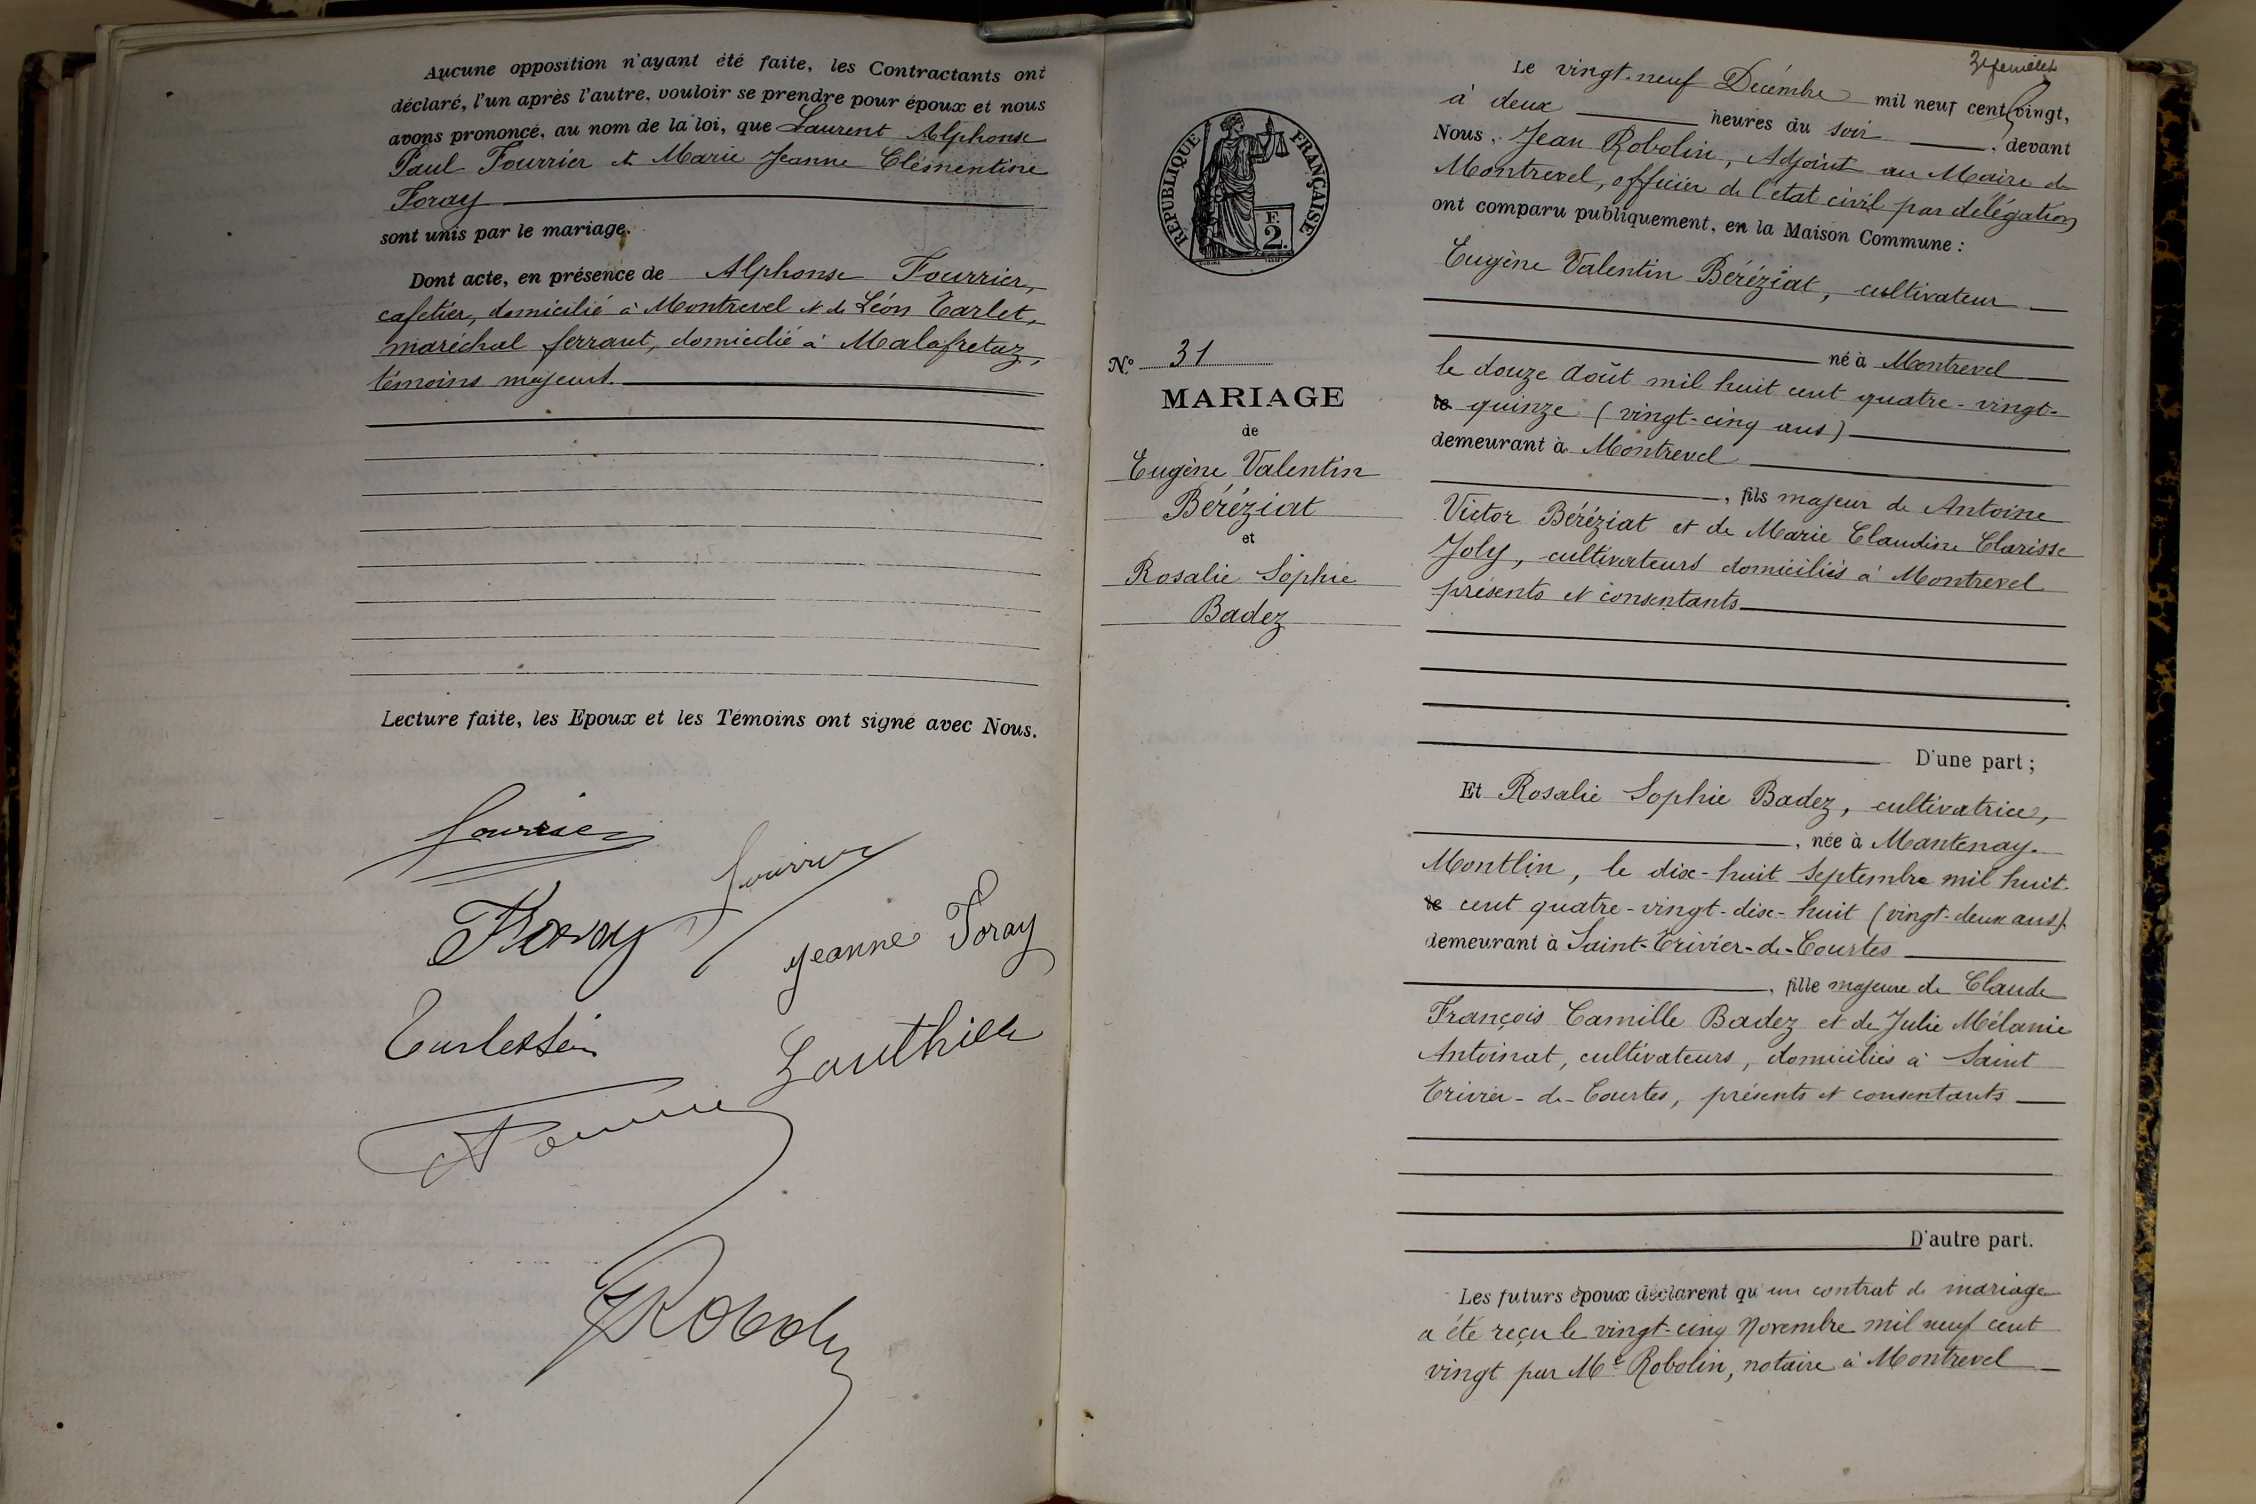 Aucune opposition n'ayant été faite, les Contractants ont
déclaré, l'un après l'autre, vouloir se prendre pour époux et nous
avons prononcé, au nom de la loi, que Laurent Alphonse
Paul Fourrier et Marie Jeanne Clémentine
Foray
sont unis par le mariage.
Dont acte, en présence de Alphonse Fourrier,
cafetier, domicilié à Montrevel et de Léon Carlet,
maréchal ferrant, domicilié à Malafretaz,
témoins majeurs.
Lecture faite, les Epoux et les Témoins ont signé avec Nous.
Fourrier
Fourrier
Foray
Jeanne Foray
Gauthier
JRobolin
REPUBLIQUE FRANÇAISE
2 F.
No 31
MARIAGE
de
Eugène Valentin
Béréziat
et
Rosalie Sophie
Badez
Le vingt-neuf Décembre mil neuf cent vingt,
à deux heures du soir, devant
Nous, Jean Robolin, Adjoint au Maire de
Montrevel, officier de l'état civil par délégation
ont comparu publiquement, en la Maison Commune :
Eugène Valentin Béréziat, cultivateur
né à Montrevel
le douze Août mil huit cent quatre-vingt-
le quinze (vingt-cinq ans)
demeurant à Montrevel
, fils majeur de Antoine
Victor Béréziat et de Marie Claudine Clarisse
Joly, cultivateurs domiciliés à Montrevel
présents et consentants
D'une part ;
Et Rosalie Sophie Badez, cultivatrice,
, née à Mantenay-
Montlin, le dix-huit Septembre mil huit
le cent quatre-vingt-dix-huit (vingt-deux ans)
demeurant à Saint-Trivier-de-Courtes
, fille majeure de Claude
François Camille Badez et de Julie Mélanie
Antoinat, cultivateurs, domiciliés à Saint
Trivier-de-Courtes, présents et consentants
D'autre part.
Les futurs époux déclarent qu'un contrat de mariage
a été reçu le vingt-cinq Novembre mil neuf cent
vingt par Me Robolin, notaire à Montrevel